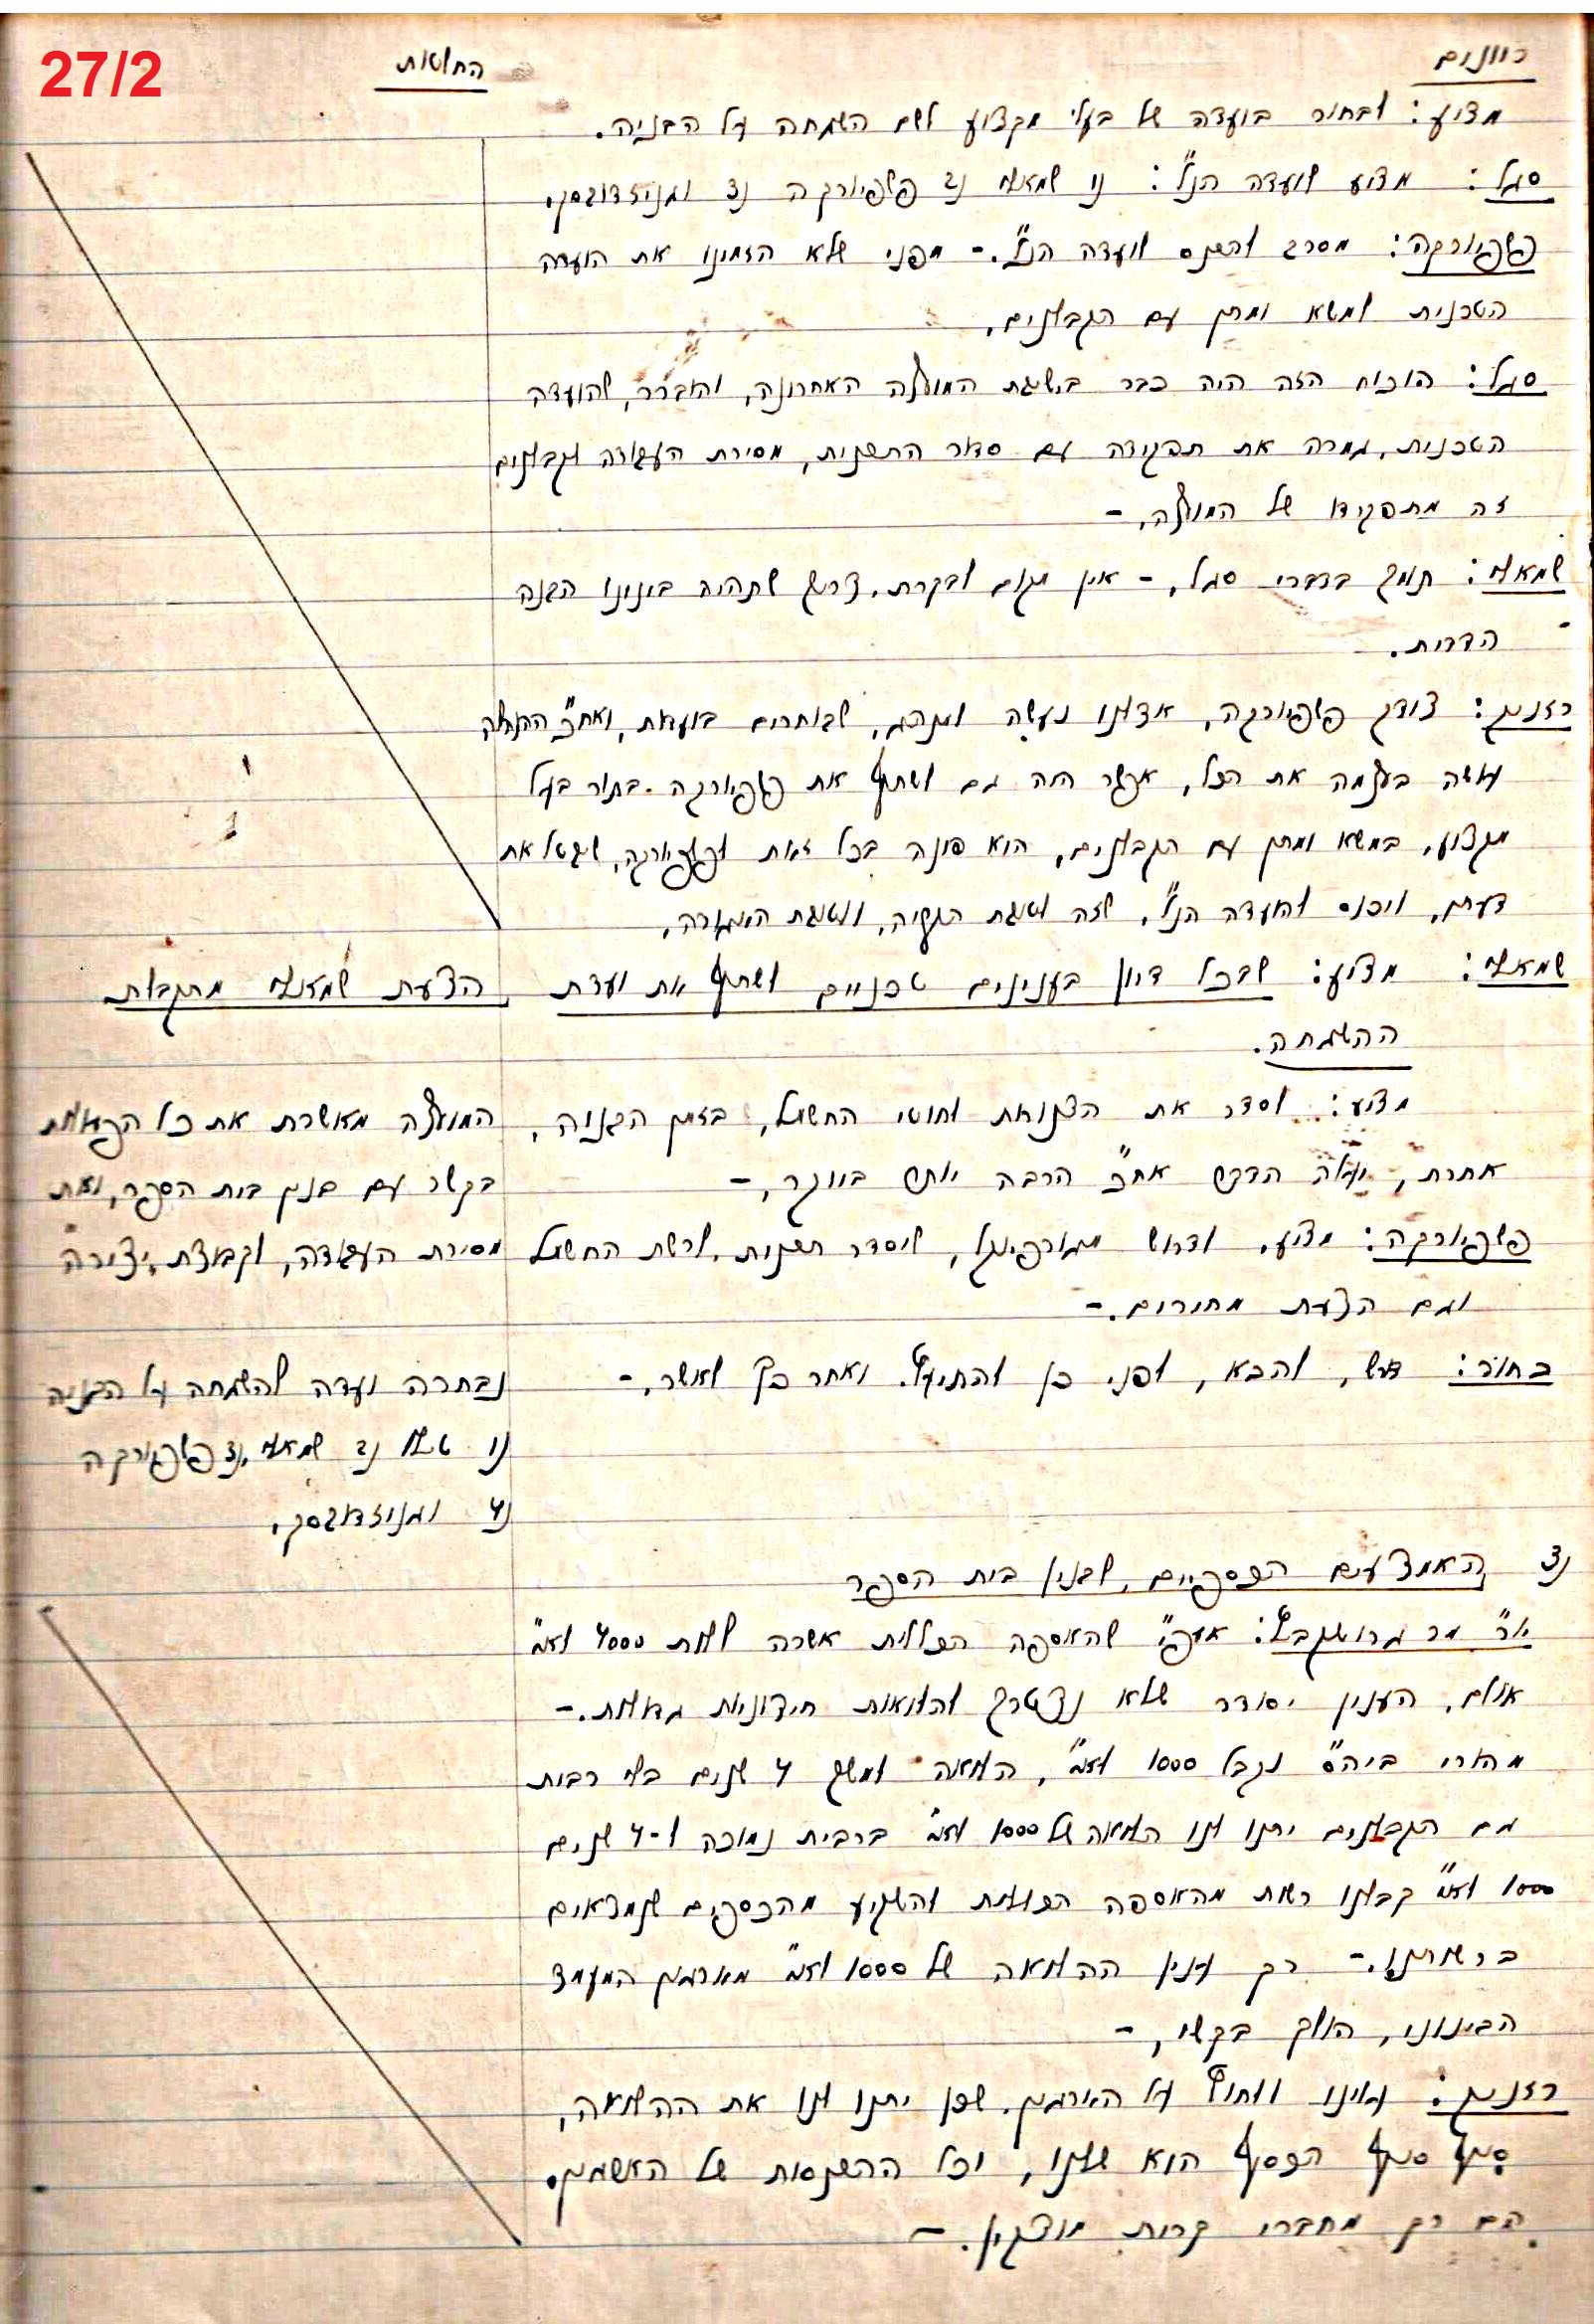 27/2
כוונים
החלטות
מציע: לבחור בועדה של בעלי מקצוע לשם השגחה על הבניה.
סגל: מציע לועדה הנ"ל: נו שמאלי נ2 פשפיורקה נ3 וגניזדובסקי.
פשפיורקה: מסרב להכנס לועדה הנ"ל. - מפני שלא הזמינו את הועדה
הטכנית למשא ומתן עם הקבלנים.
סגל: הוכוח הזה היה כבר בישיבת המועצה האחרונה, והוברר, שהועדה
הטכנית, גמרה את תפקידה עם סדור התכנית, מסירת העבודה לקבלנים
זה מתפקידו של המועצה. -
שמאלי: תומך בדברי סגל, - אין מקום לבקרת. צריך שתהיה בינינו הבנה
הדדית.
רזניק: צודק פשפיורקה, אצלנו נעשה למנהג, שבוחרים בועדות, ואח"כ המועצה
עושה בעצמה את הכל, אפשר היה גם לשתף את פשפיורקה. בתור בעל
מקצוע, במשא ומתן עם הקבלנים, הוא פונה בכל זאת לפשפיורקה, שיבטל את
דעתו, ויכנס להועדה הנ"ל, שזה לטובת הקריה, ולטובת העבודה.
שמאלי: מציע: שבכל דיון בענינים טכניים לשתף את ועדת
ההשגחה.
הצעת שמאלי מתקבלת
מציע: לסדר את הצנורות לחוטי החשמל, בזמן הבניה,
אחרת, יעלה הדבר אח"כ הרבה יותר ביוקר. -
פשפיורקה: מציע, לדרוש מגורפינקל, שיסדר תכנית, לרשת החשמל
וגם הצעת מחירים. -
בחור: דורש, להבא, לפני כן להתיעץ. ואחר כך לאשר. -
המועצה מאשרת את כל הפעולות
בקשר עם בנין בית הספר, ואת
מסירת העבודה, לקבוצת, יצירה
נבחרה ועדה להשגחה על הבניה
נו נ2 שמאלי, נ3 פשפיורקה
נ4 וגניזדובסקי.
נ3 האמצעים הכספיים, לבנין בית הספר
יו"ר מר גרושקביץ: אעפ"י שהאספה הכללית אשרה ללוות 4000 לא"י
אולם, הענין יסודר שלא נצטרך להלואות חיצוניות גדולות. -
מהורי ביה"ס נקבל 1000 לא"י, הלואה למשך 4 שנים בלי רבית
גם הקבלנים יתנו לנו הלואה של 1000 לא"י ברבית נמוכה ל-4 שנים
1000 לא"י קבלנו רשות מהאספה הכללית להשקיע מהכספים שנמצאים
ברשותנו. - רק ענין ההלואה של 1000 לא"י מארגון המעמד
הבינוני, הולך בקשי. -
רזניק: עלינו ללחוץ על הארגון, שכן יתנו לנו את ההלואה,
סוף סוף הכסף הוא שלנו, וכל ההכנסות של האשראי
הם רק מחברי קרית מוצקין. -